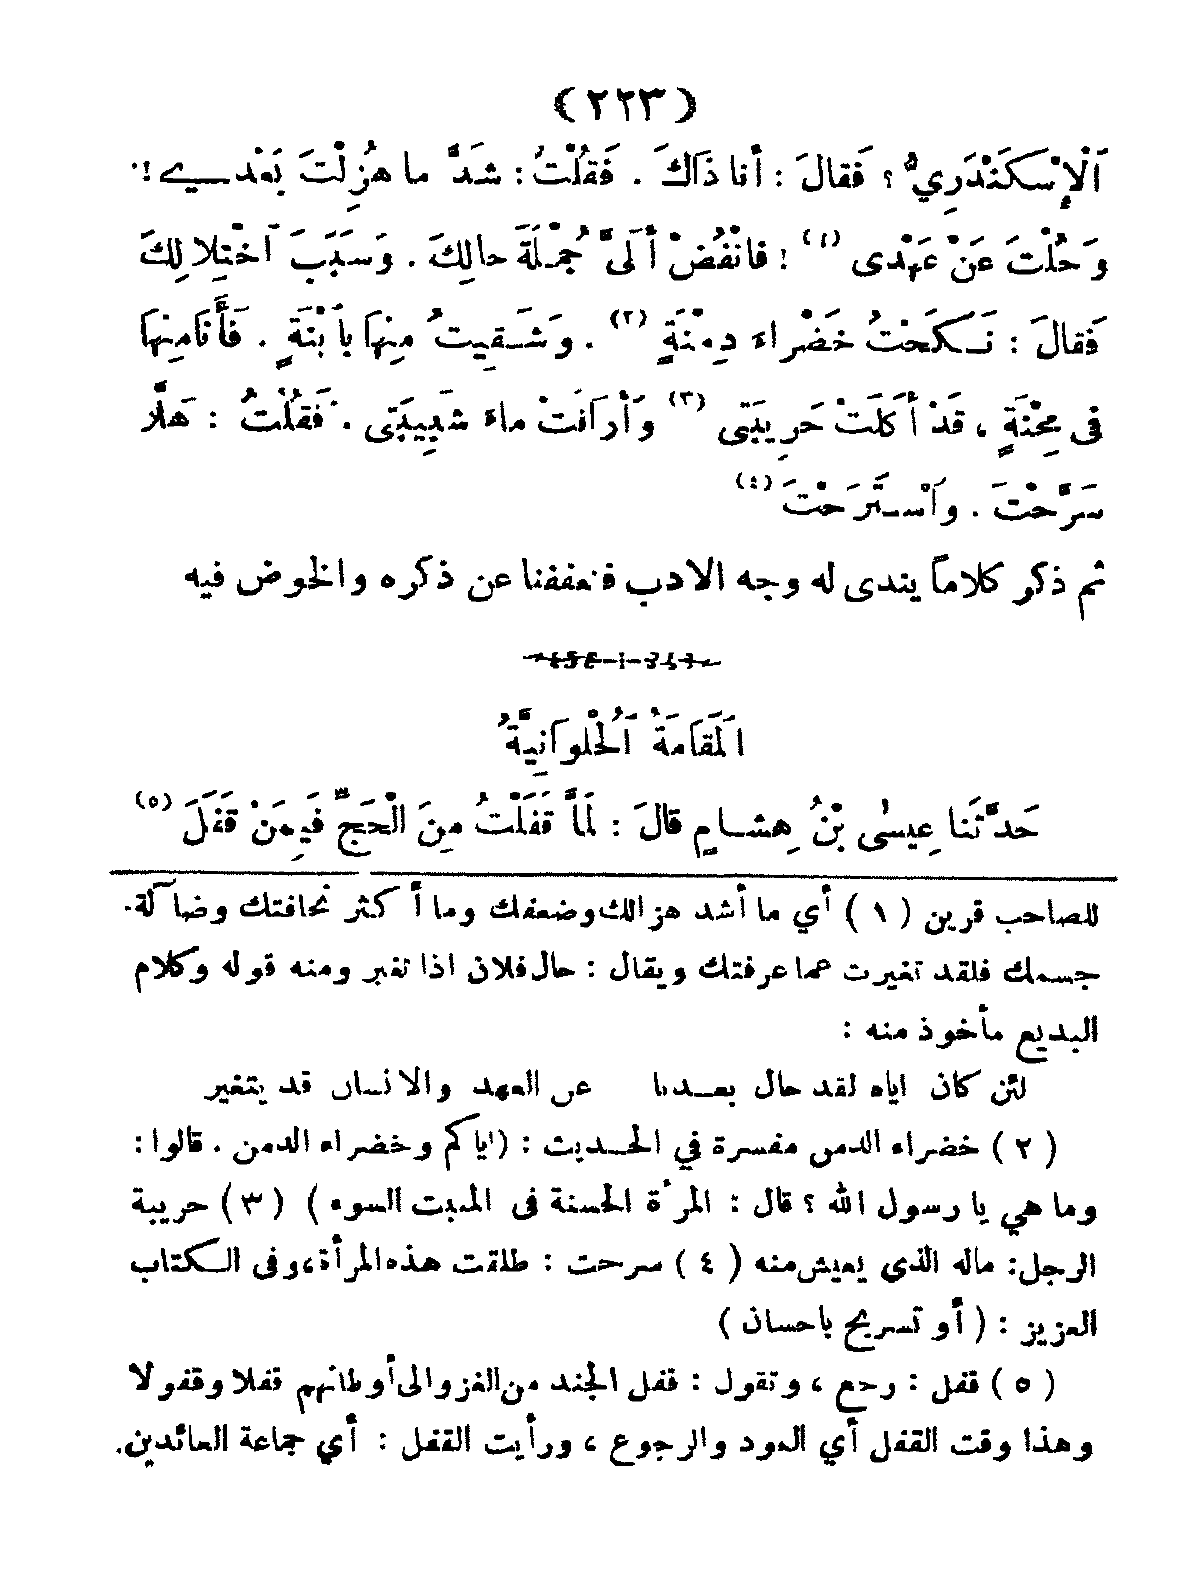 (٢٢٣)
اَلْإِسْكَنْدَرِيُّ ؟ فَقالَ : أَنا ذَاكَ . فَقُلْتُ : شَدَّ ما هُزِلْتَ بَعْدِي !.
وَحُلْتَ عَنْ عَهْدِى (١) ! فانْفُضْ أَلَىَّ جُمْلَةَ حالِكَ . وَسَبَبَ آخْتِلالِكَ
فَقالَ : نَكَحْتُ خَضْراءَ دِمْنَةٍ (٢) . وَشَقِيتُ مِنْها بآبْنَةٍ . فَأَنَا مِنْها
فى مِحْنَةٍ ، قَدْ أَكَلَتْ حَرِيبَتِى (٣) وَأَرَاقَتْ ماءَ شَبِيبَتِى . فَقُلْتُ : هَلَّا
سَرَّحْتَ . وَآسْتَرَحْتَ (٤)
ثم ذكر كلاماً يندى له وجه الادب فعففنا عن ذكره والخوض فيه
المَقَامَةُ اَلْحُلْوَانِيَّةُ
حَدَّثَنا عِيسى بْنُ هِشامٍ قالَ : لَمَّا قَفَلْتُ مِنَ الْحَجِّ فَيِمَنْ قَفَلَ (٥)
للصاحب قرين (١) أي ما أشد هزالك وضعفك وما أكثر نحافتك وضآلة
جسمك فلقد تغيرت عما عرفتك ويقال : حال فلان اذا تغير ومنه قوله وكلام
البديع مأخوذ منه :
لئن كان اياه لقد حال بعدنا عن العهد والانسان قد يتغير
(٢) خضراء الدمن مفسرة في الحديث : (اياكم وخضراء الدمن . قالوا :
وما هي يا رسول الله ؟ قال : المرأة الحسنة فى المنبت السوء) (٣) حريبة
الرجل: ماله الذي يعيش منه (٤) سرحت : طلقت هذه المرأة، وفى الكتاب
العزيز : (أو تسريح باحسان)
(٥) قفل : رجع ، وتقول : قفل الجند من الغزو الى أوطانهم قفلا وقفولا
وهذا وقت القفل أي العود والرجوع ، ورأيت القفل : أي جماعة العائدين.